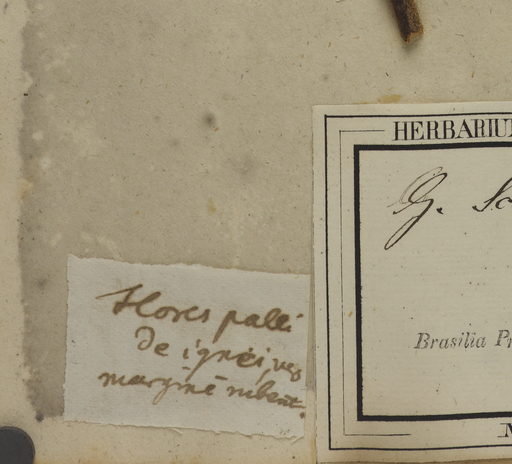 Flores palli
de ignei, vel
marginē rubent.
HERBARIU
G. Sc
Brasilia Pr
M